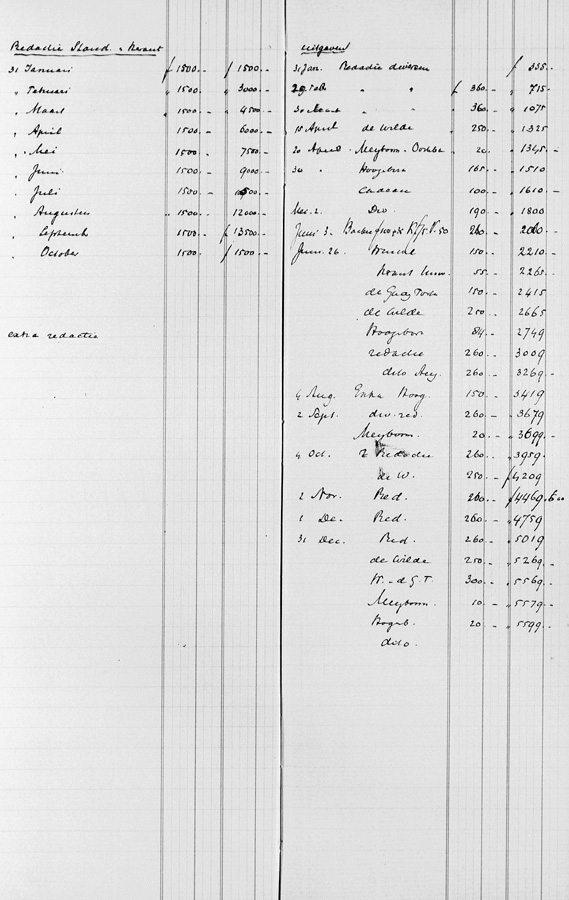 Redactie Stand. Krant
31 Januari f 1500.- f 1500.-
" Februari " 1500.- " 3000.-
" Maart " 1500.- " 4500.-
" April 1500.- 6000.-
" Mei 1500.- 7500.-
" Juni 1500.- 9000.-
" Juli 1500.-
" Augustus 1500.- 12000.-
" Septemb 1500.- f 13500.-
" October 1500. f 1500.-
extra redactie
uitgaven
31 Jan. Redactie diversen f 355.-
29 Feb. " " f 360.- " 715.-
30 Maart " " 360.- " 1075
10 April de Wilde 250.- " 1325
20 April Meyboom 20.- " 1345.-
30 " Hoogeb 165.- " 1510
Cadeau 100.- " 1610.-
Mei 2. Div. 190.- " 1800
Juni 3. 260.-
Juni 26. 150.- 2210.-
Krant 55.- 2265.-
de 150.- 2415
de Wilde 250.- 2665
Hoogeb 84.- 2749
redactie 260.- 3009
dito Aug. 260.- 3269.-
4 Aug. Extra Hoog. 150.- 3419
2 Sept. div. red. 260.- 3679
Meyboom. 20.- 3699.-
4 Oct. Redactie 260.- 3959.-
de W. 250.- f 4209
2 Nov. Red. 260.- f 4469.-
1 De. Red. 260.- 4759
31 Dec. Red. 260.- 5019
de Wilde 250.- 5269.-
H. - d G. T. 300.- 5569.-
Meyboom. 10.- 5579.-
Hogeb. 20.- 5599.-
dito.